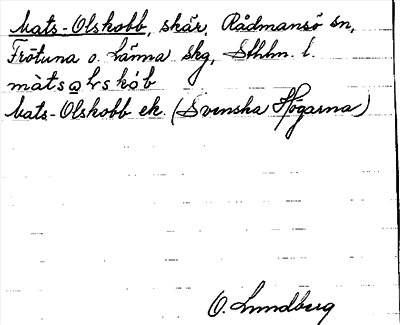 Mats-Olskobb, skär, Rådmansö sn,
Frötuna o. Länna skg, Sthlm. l.
Mats-Olskobb ek. (Svenska Högarna)
O. Lundberg